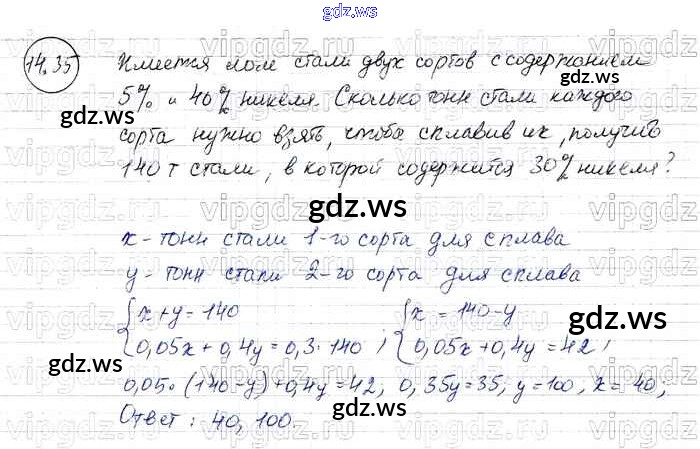 gdz.ws
14.35 Имеется лом стали двух сортов с содержанием
5% и 40% никеля. Сколько тонн стали каждого
сорта нужно взять, чтобы сплавив их, получить
140 т стали, в которой содержится 30% никеля?
x - тонн стали 1-го сорта для сплава
y - тонн стали 2-го сорта для сплава
{x+y=140 {x=140-y
{0,05x+0,4y=0,3·140; {0,05x+0,4y=42;
0,05·(140-y)+0,4y=42; 0,35y=35; y=100, x=40;
Ответ: 40, 100.